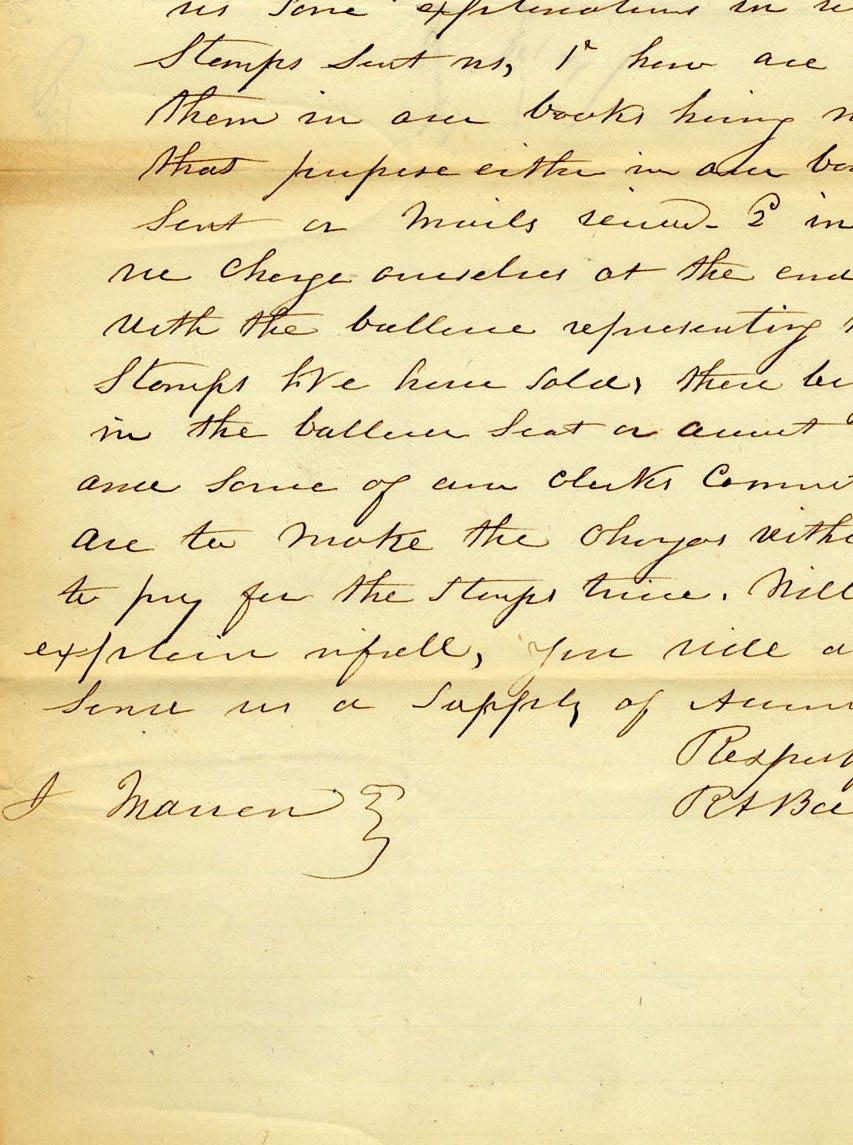 us some explanations in re
Stamps sent us, 1st how are
them in our books being n
that purpose either in our bo
Sent or Mails receivd. 2d in
we charge ourselves at the end
with the ballence representing
Stamps We have sold, there be
in the ballence Seat or
and some of our clerks
are to make the charges witho
to pay for the stamps twice. Will
explain us full, you will a
Send us a Supply of
Respect
J Marren
R A Bee